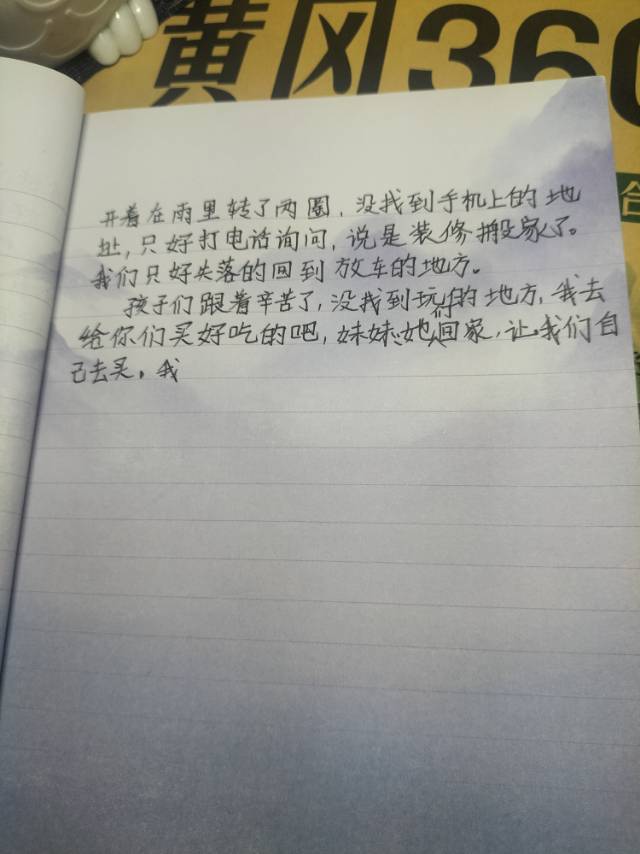 黄冈360
合
开着在雨里转了两圈，没找到手机上的地
址，只好打电话询问，说是装修搬家了。
我们只好失落的回到放车的地方。
孩子们跟着辛苦了，没找到玩的地方，我去
给你们买好吃的吧，妹妹她们回家，让我们自
己去买。我